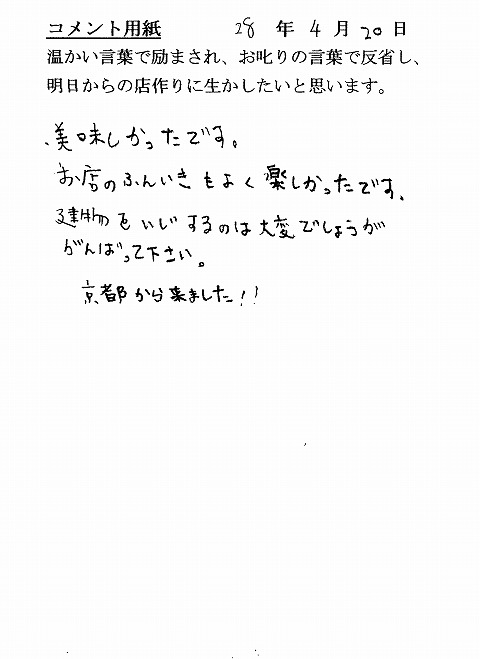 コメント用紙 28 年 4 月 20 日
温かい言葉で励まされ、お叱りの言葉で反省し、
明日からの店作りに生かしたいと思います。
美味しかったです。
お店のふんいきもよく楽しかったです。
建物をいじするのは大変でしょうが
がんばって下さい。
京都から来ました!!